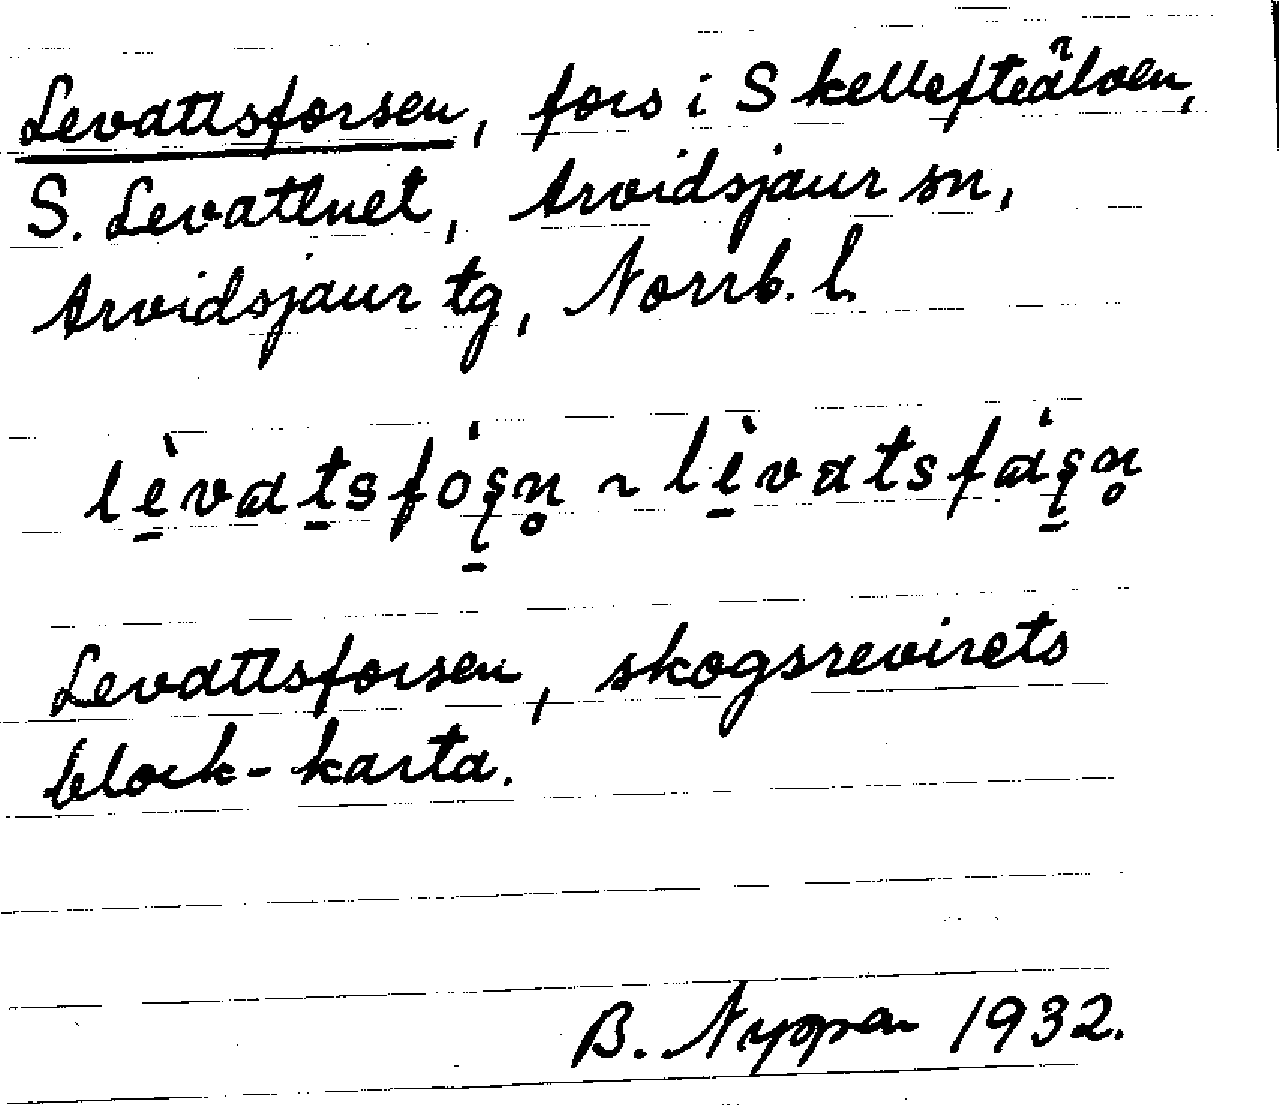 Levattsforsen, fors i Skellefteälven,
S. Levattnet, Arvidsjaur sn,
Arvidsjaur tg, Norrb. l.
lè̠vat̠sfó̱ʂn̥ ~ lè̠vatsfáʂ̠n̥
Levattsforsen, skogsrevirets
block-karta.
B. Nyman 1932.